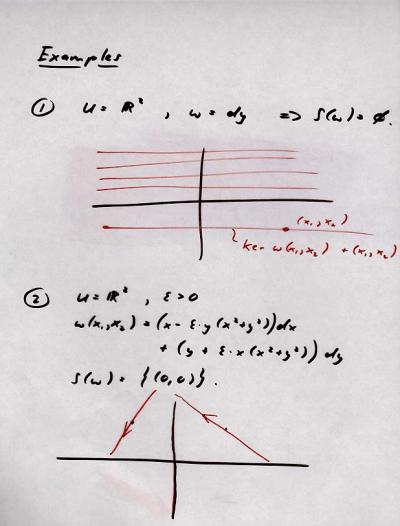 Examples
① U = ℝ² , ω = dy => S(ω) = ∅.
(x₁,x₂)
ker ω(x₁,x₂) + (x₁,x₂)
② U = ℝ² , ε > 0
ω(x₁,x₂) = (x - ε·y(x²+y²))dx
+ (y + ε·x(x²+y²)) dy
S(ω) = {(0,0)}.